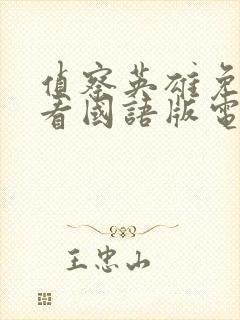 偵察英雄免
看國語版電
王忠山